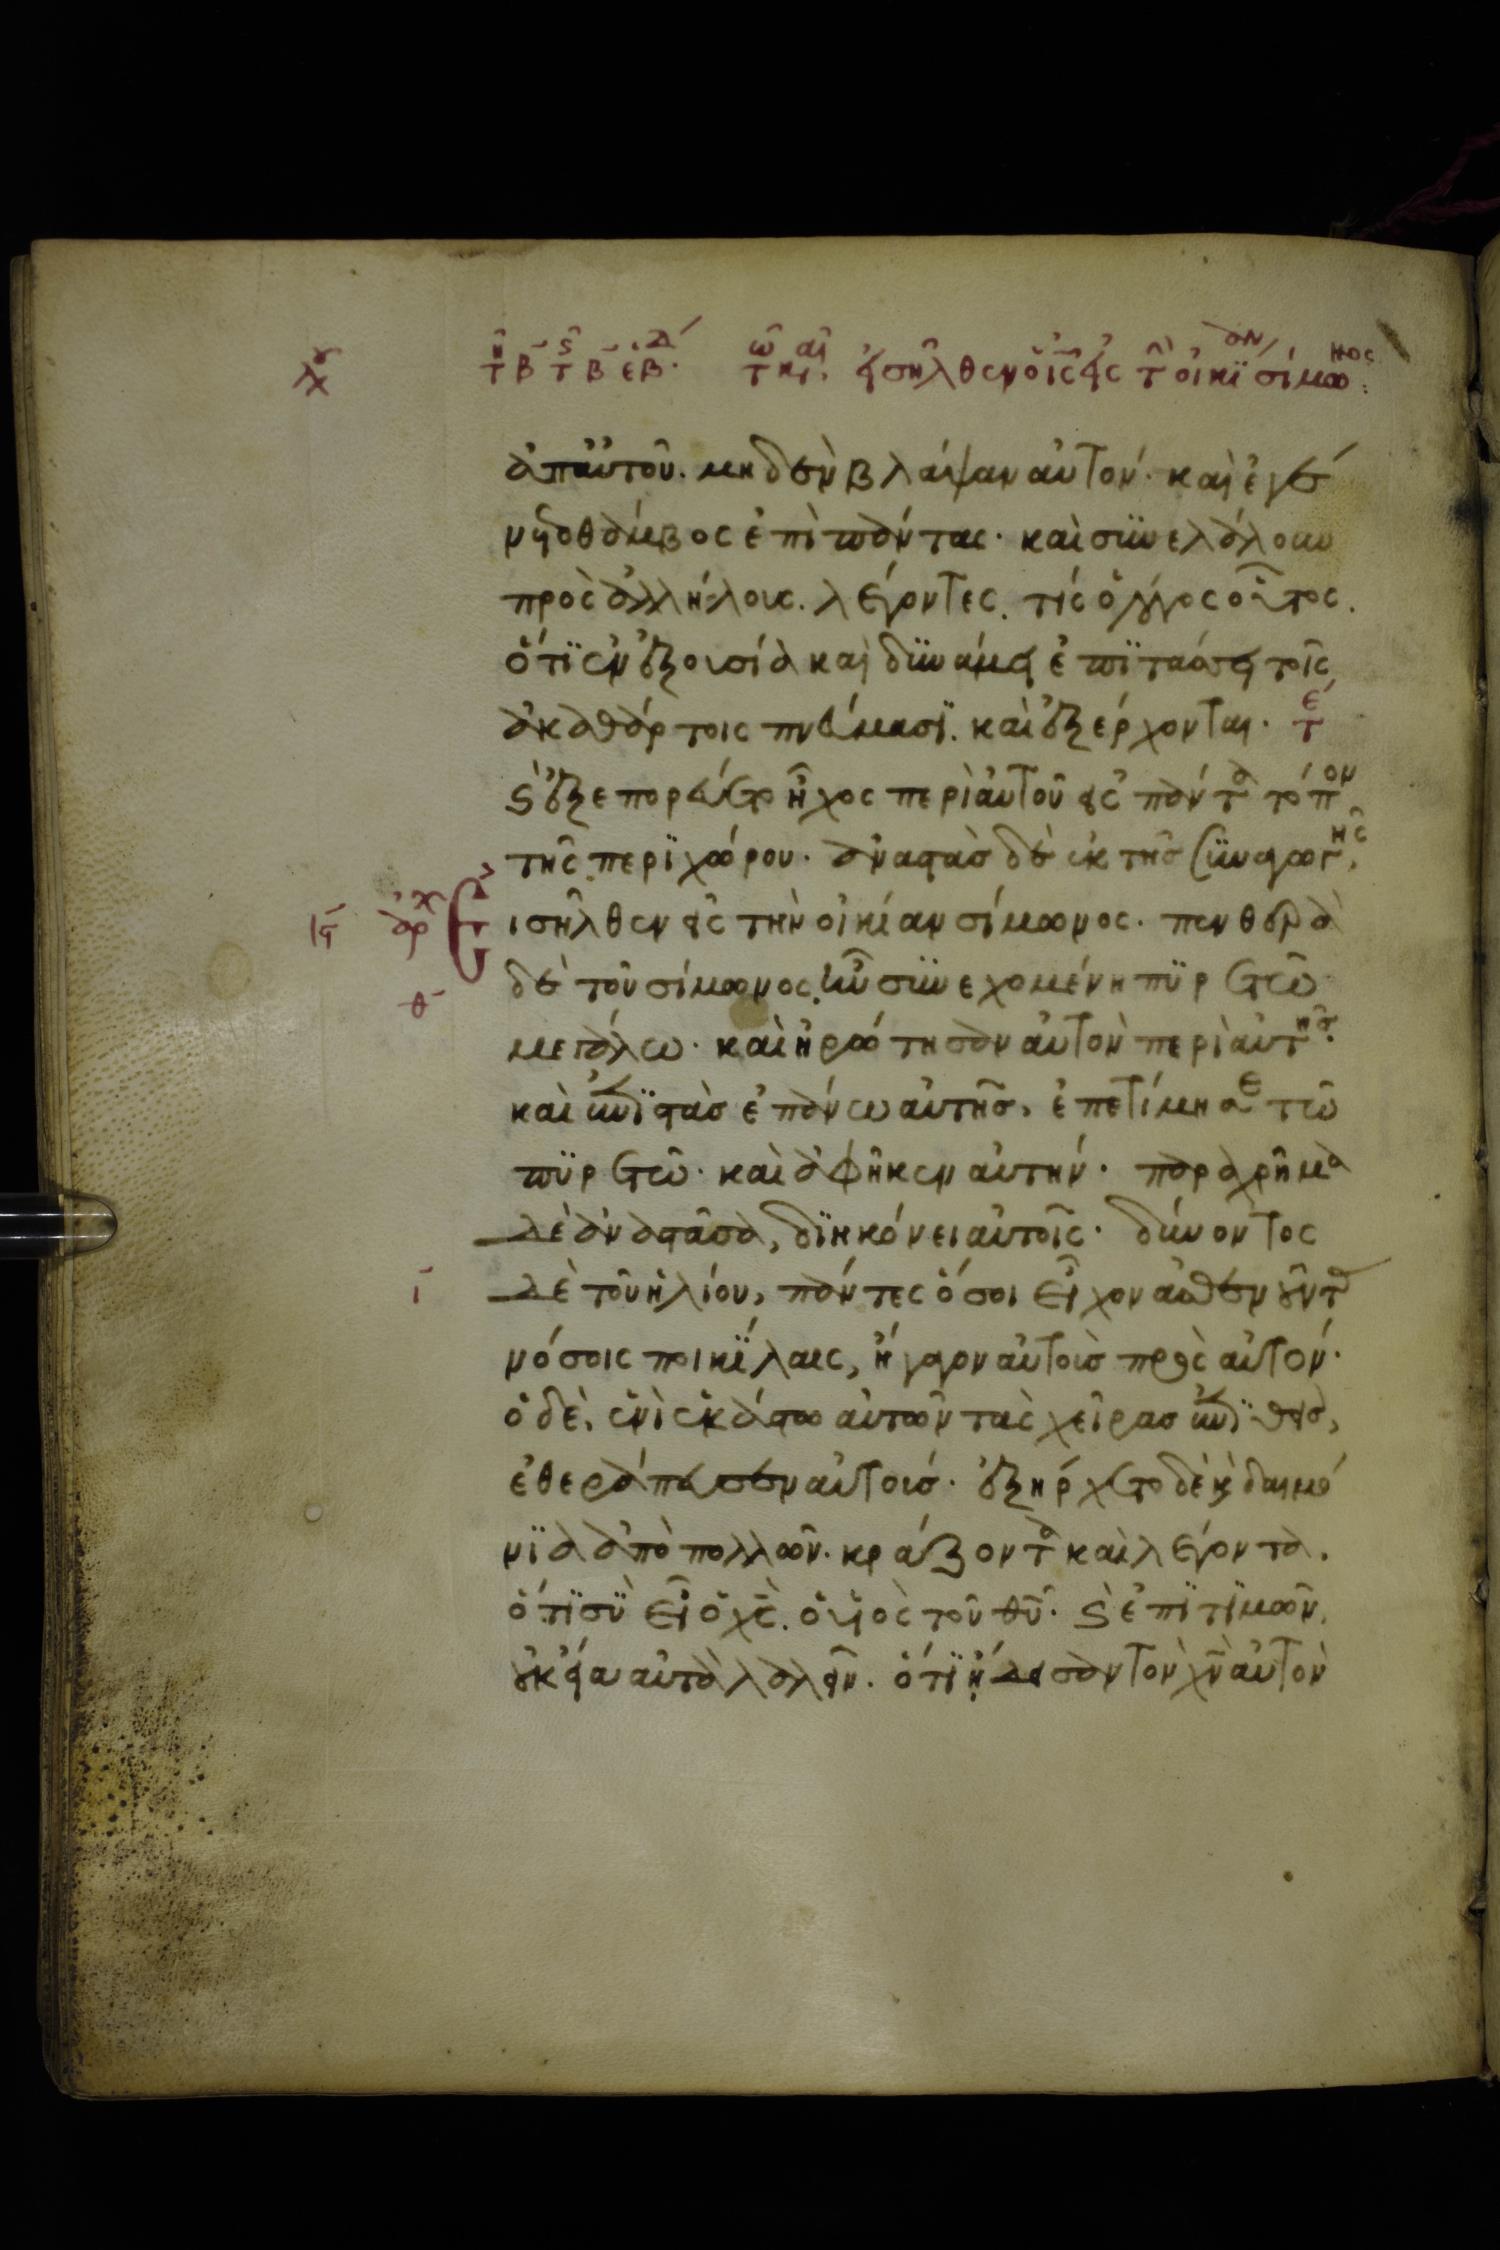 τῆ β̄ τ ς̑ β̄ ἑβδ τῶ καιρ. εἰσῆλθεν ὁ ἰς̄ εἰς τ̀ οἰκΐαν σίμωνος:
ἀπ αὐτοῦ. μηδὲν βλάψαν αὐτόν· καὶ ἐγέ
νετο θάμβος ἐπὶ πάντας· καὶ σϋνελάλουν
πρὸς ἀλλήλους. λέγοντες. τίς ὁ λόγος οὗτος.
ὅτϊ ἐν ἐξουσία καὶ δϋνάμει ἐπϊτάσσει τοῖς
ἀκαθάρτοις πνεύμασϊ. καὶ ἐξέρχονται· τέ
ϛ ἐξεπορεύετο ἦχος περὶ αὐτοῦ εἰς πάντα τόπον
τῆς περϊχώρου· ἀναστὰσ δὲ ἐκ τῆσ σϋναγωγῆς,
ις̄ ἀρχ
ισῆλθεν εἰς τὴν οἰκίαν σίμωνος· πενθερὰ
δὲ τοῦ σίμωνος ἦν σϋνεχομένη πϋρετῶ
θ̄
μεγάλω· καὶ ἠρώτησαν αὐτὸν περὶ αὐτῆσ.
καὶ ἐπϊστὰσ ἐπάνω αὐτῆσ, ἐπετίμησε τῶ
πϋρετῶ· καὶ ἀφῆκεν αὐτήν· παραχρῆμα
δὲ ἀναστᾶσα, δϊηκόνει αὐτοῖς· δύνοντος
ῑ
δὲ τοῦ ἡλίου, πάντες ὅσοι εἶχον ἀσθενοῦντας
νόσοις ποικΐλαις, ἤγαγον αὐτοὺσ πρὸς αὐτόν·
ὁ δὲ, ἑνὶ ἑκάστω αὐτῶν τὰς χεῖρασ ἐπϊθεὶσ,
ἐθεράπευσεν αὐτούσ· ἐξήρχετο δὲ ϗ δαιμό
νϊα ἀπὸ πολλῶν· κράζοντα καὶ λέγοντα.
ὅτϊ σῢ εἶ ὁ χς̄. ὁ υἱὸς τοῦ θῡ· ϛ ἐπϊτϊμῶν,
οὐκ εἴα αὐτὰ λαλεῖν. ὅτϊ ἤδεισαν τὸν χν̄ αὐτὸν